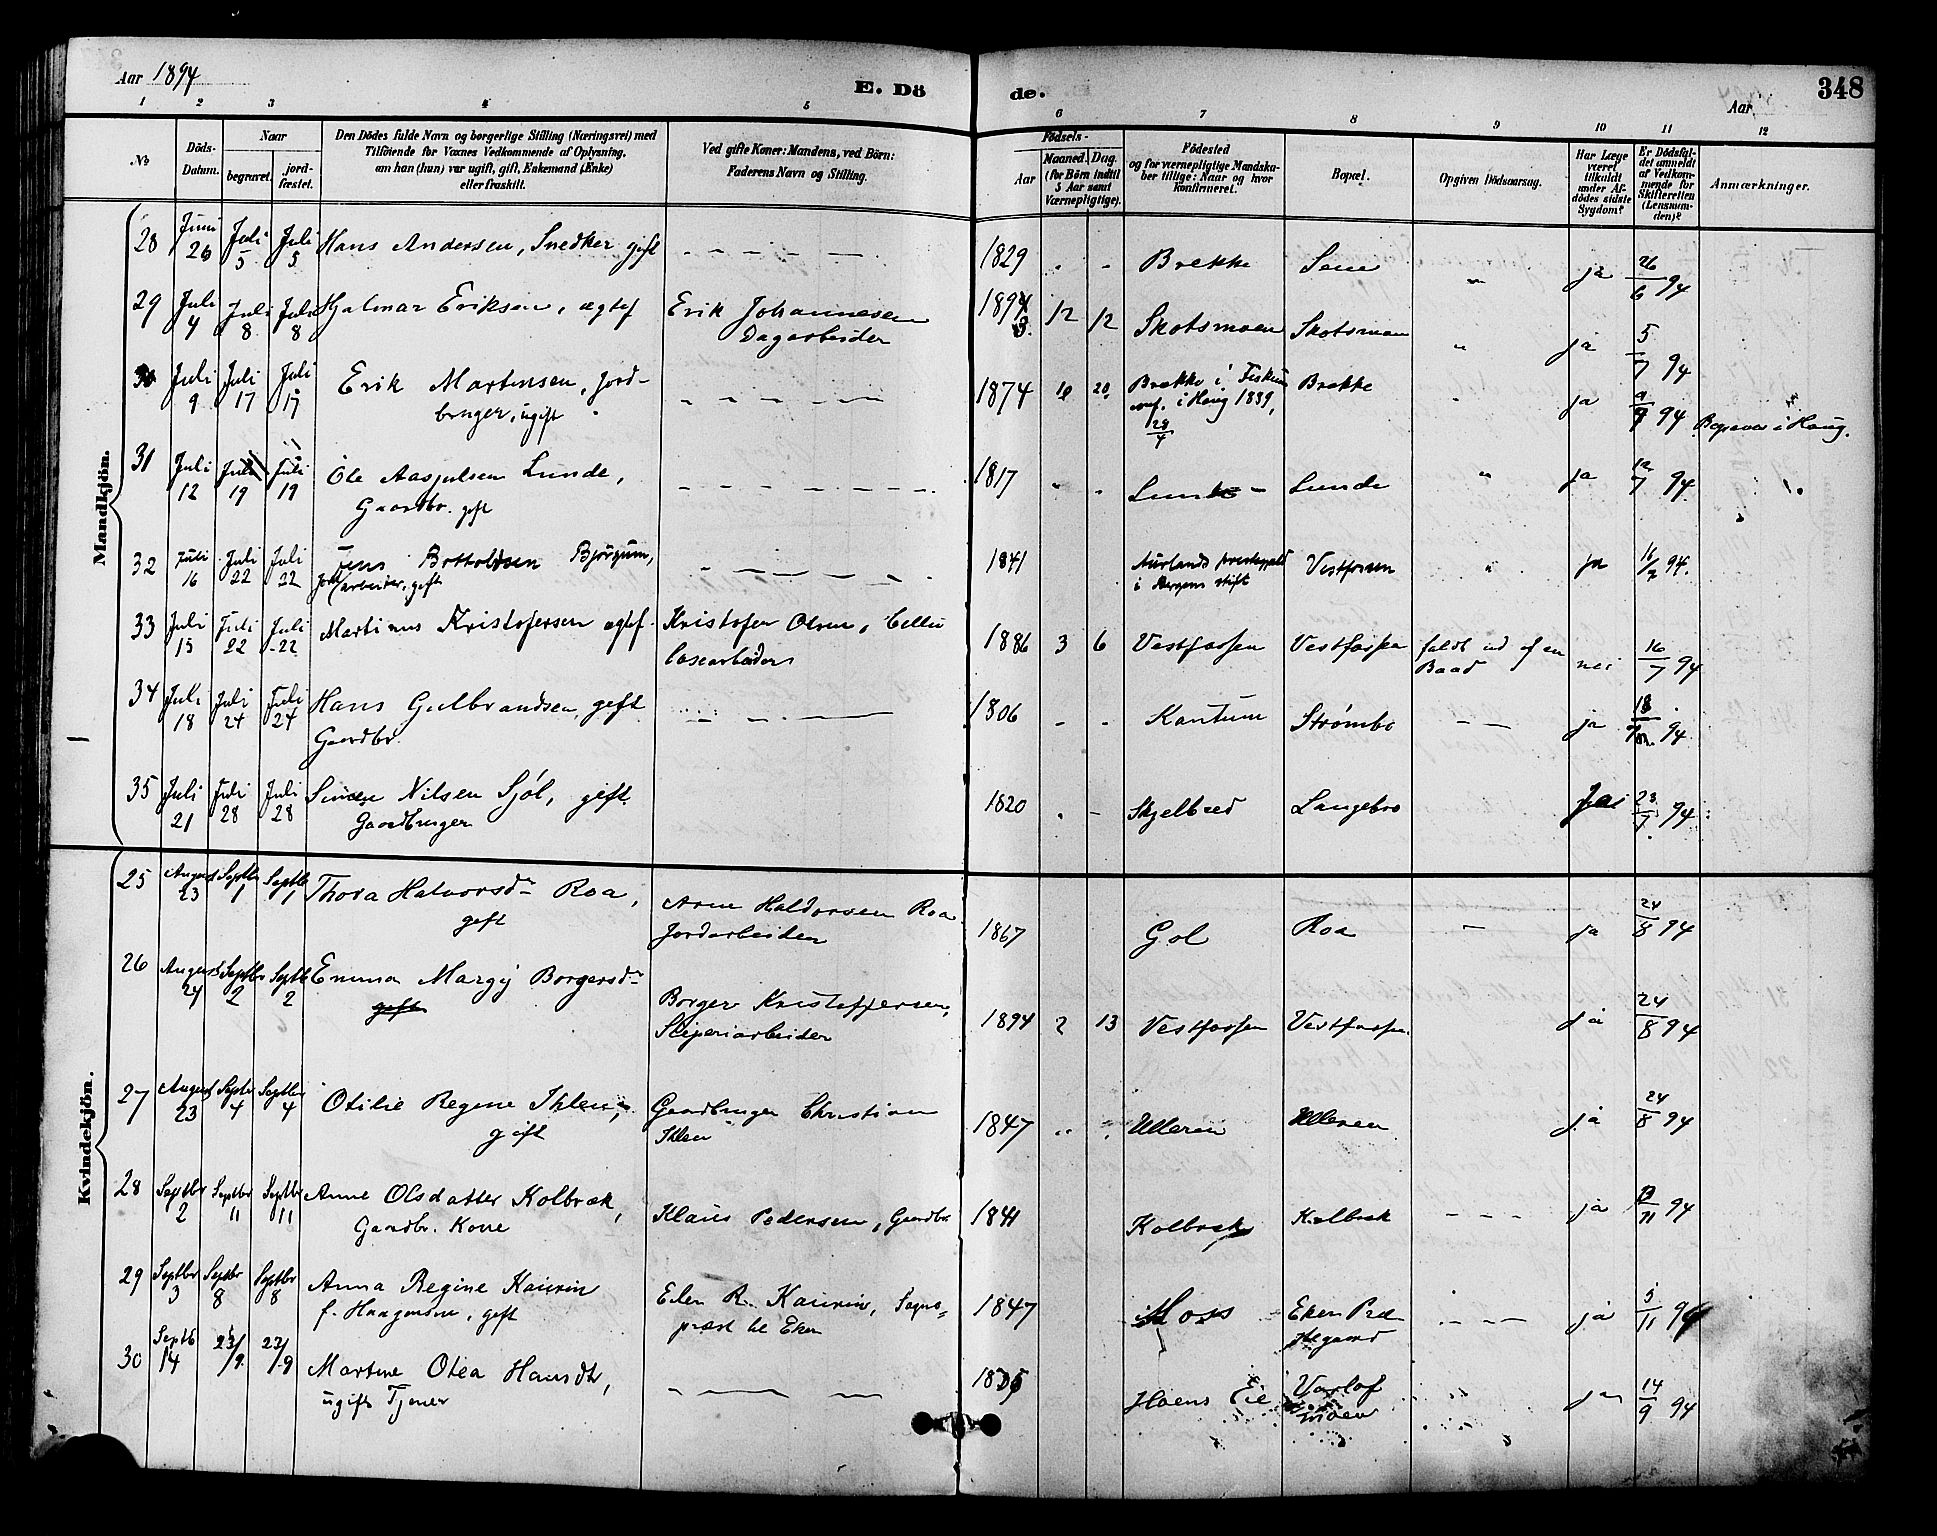 Aar 1894
E. Döde.
Aar
348
1 2 3 4 5 6 7 8 9 10 11 12
No
Döds-Datum.
Naar
begravet.
jord-fæstet.
Den Dödes fulde Navn og borgerlige Stilling (Næringsvei) med
Tilföiende for Voxnes Vedkommende af Oplysning,
om han (hun) var ugift, gift, Enkemand (Enke)
eller fraskilt.
Ved gifte Koner: Mandens, ved Börn:
Faderens Navn og Stilling.
Födsels-
Aar
Maaned. Dag.
(for Börn indtil
5 Aar samt
Værnepligtige).
Födested
og for værnepligtige Mandska-
ber tillige: Naar og hvor
konfirmeret.
Bopæl.
Opgiven Dödsaarsag.
Har Læge
været
tilkaldt
under Af-
dödes sidste
Sygdom?
Er Dödsfal-
det anmeldt
af Vedkom-
mende for
Skifteretten
(Lensman-
den)?
Anmærkninger.
Mandkjön.
28 Juni 26 Juli 5 Juli 5 Hans Andersen, Snedker gift 1829 Brekke Sem ja 26/6 94
29 Juli 4 Juli 8 Juli 8 Hjalmar Eriksen, ægtef Erik Johannesen
Dagarbeider 12 12 Skotsmoen Skotsmoen ja 5/7 94
Juli 9 Juli 17 Juli 17 Erik Martinsen, Jord-
bruger, ugift 1874 20 Brekke i Fiskum
i Haug 1889,
28/4 Brekke ja 94 i Haug.
31 Juli 12 Juli 19 Juli 19 Ole Aasjulsen Lunde,
Gaardbr. gift 1817 Lunde Lunde ja 12/7 94
32 Juli 16 Juli 22 Juli 22 Jens Bottolfsen Bjørgum,
Jordarbeider, gift 1841 Aurlands præstegjeld
i Bergens stift Vestfossen ja 94.
33 Juli 15 Juli 22 Juli 22 Martinus Kristofersen ægtef. Kristofer Olsen, Cellu
losearbeider 1886 3 6 Vestfossen Vestfossen faldt ud af en
Baad nei 16/7 94
34 Juli 18 Juli 24 Juli 24 Hans Gulbrandsen, gift
Gaardbr. 1806 Kantum Strømbo ja 18 94.
35 Juli 21 Juli 28 Juli 28 Nilsen Sjøl, gift.
Gaardbruger 1820 Skjelbred Langebro Ja 23/7 94
Kvindekjön.
25 August 23 Septbr 1 Septbr 1 Thora Halvorsdr Roa,
gift Arne Haldorsen Roa
Jordarbeider 1867 Gol Roa ja 24/8 94
26 August 24 Septbr 2 Septbr 2 Emma Margij Borgersdr
gift Borger Kristoffersen,
Sliperiarbeider 1894 2 13 Vestfossen Vestfossen ja 24/8 94
27 August 23 Septbr 4 Septbr 4 Otilie Regine Ihlen,
gift Gaardbruger Christian
Ihlen 1847 Ulleren Ulleren ja 24/8 94
28 Septbr 2 Septbr 11 Septbr 11 Anne Olsdatter Kolbræk,
Gaardbr. Kone Klaus Pedersen, Gaardbr 1841 Kolbræk Kolbræk ja 94
29 Septbr 3 Septbr 8 Septbr 8 Anna Regine Kaurin
f. Haagensen, gift Eiler R. Kaurin, Sogne-
præst til Eker 1847 Moss Eker Præ
stegaard ja 5/11 94
30 Septb 14 23/9 23/9 Martine Otea Hansdtr,
ugift Tjener Hoens Eie ja 14/9 94